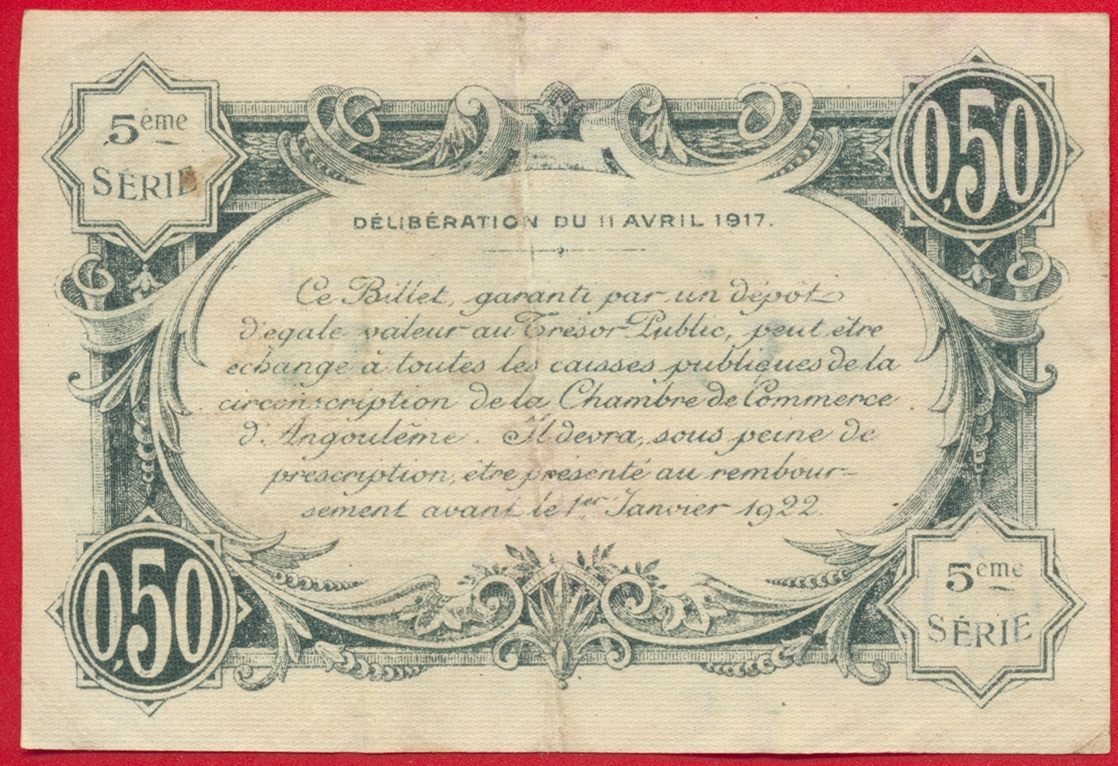 5ème
SÉRIE
0,50
DÉLIBÉRATION DU 11 AVRIL 1917.
Ce Billet, garanti par un dépôt
d'égale valeur au Trésor Public, peut être
échangé à toutes les caisses publiques de la
circonscription de la Chambre de Commerce
d'Angoulême. Il devra, sous peine de
prescription, être présenté au rembour-
sement avant le 1er Janvier 1922.
0,50
5ème
SÉRIE